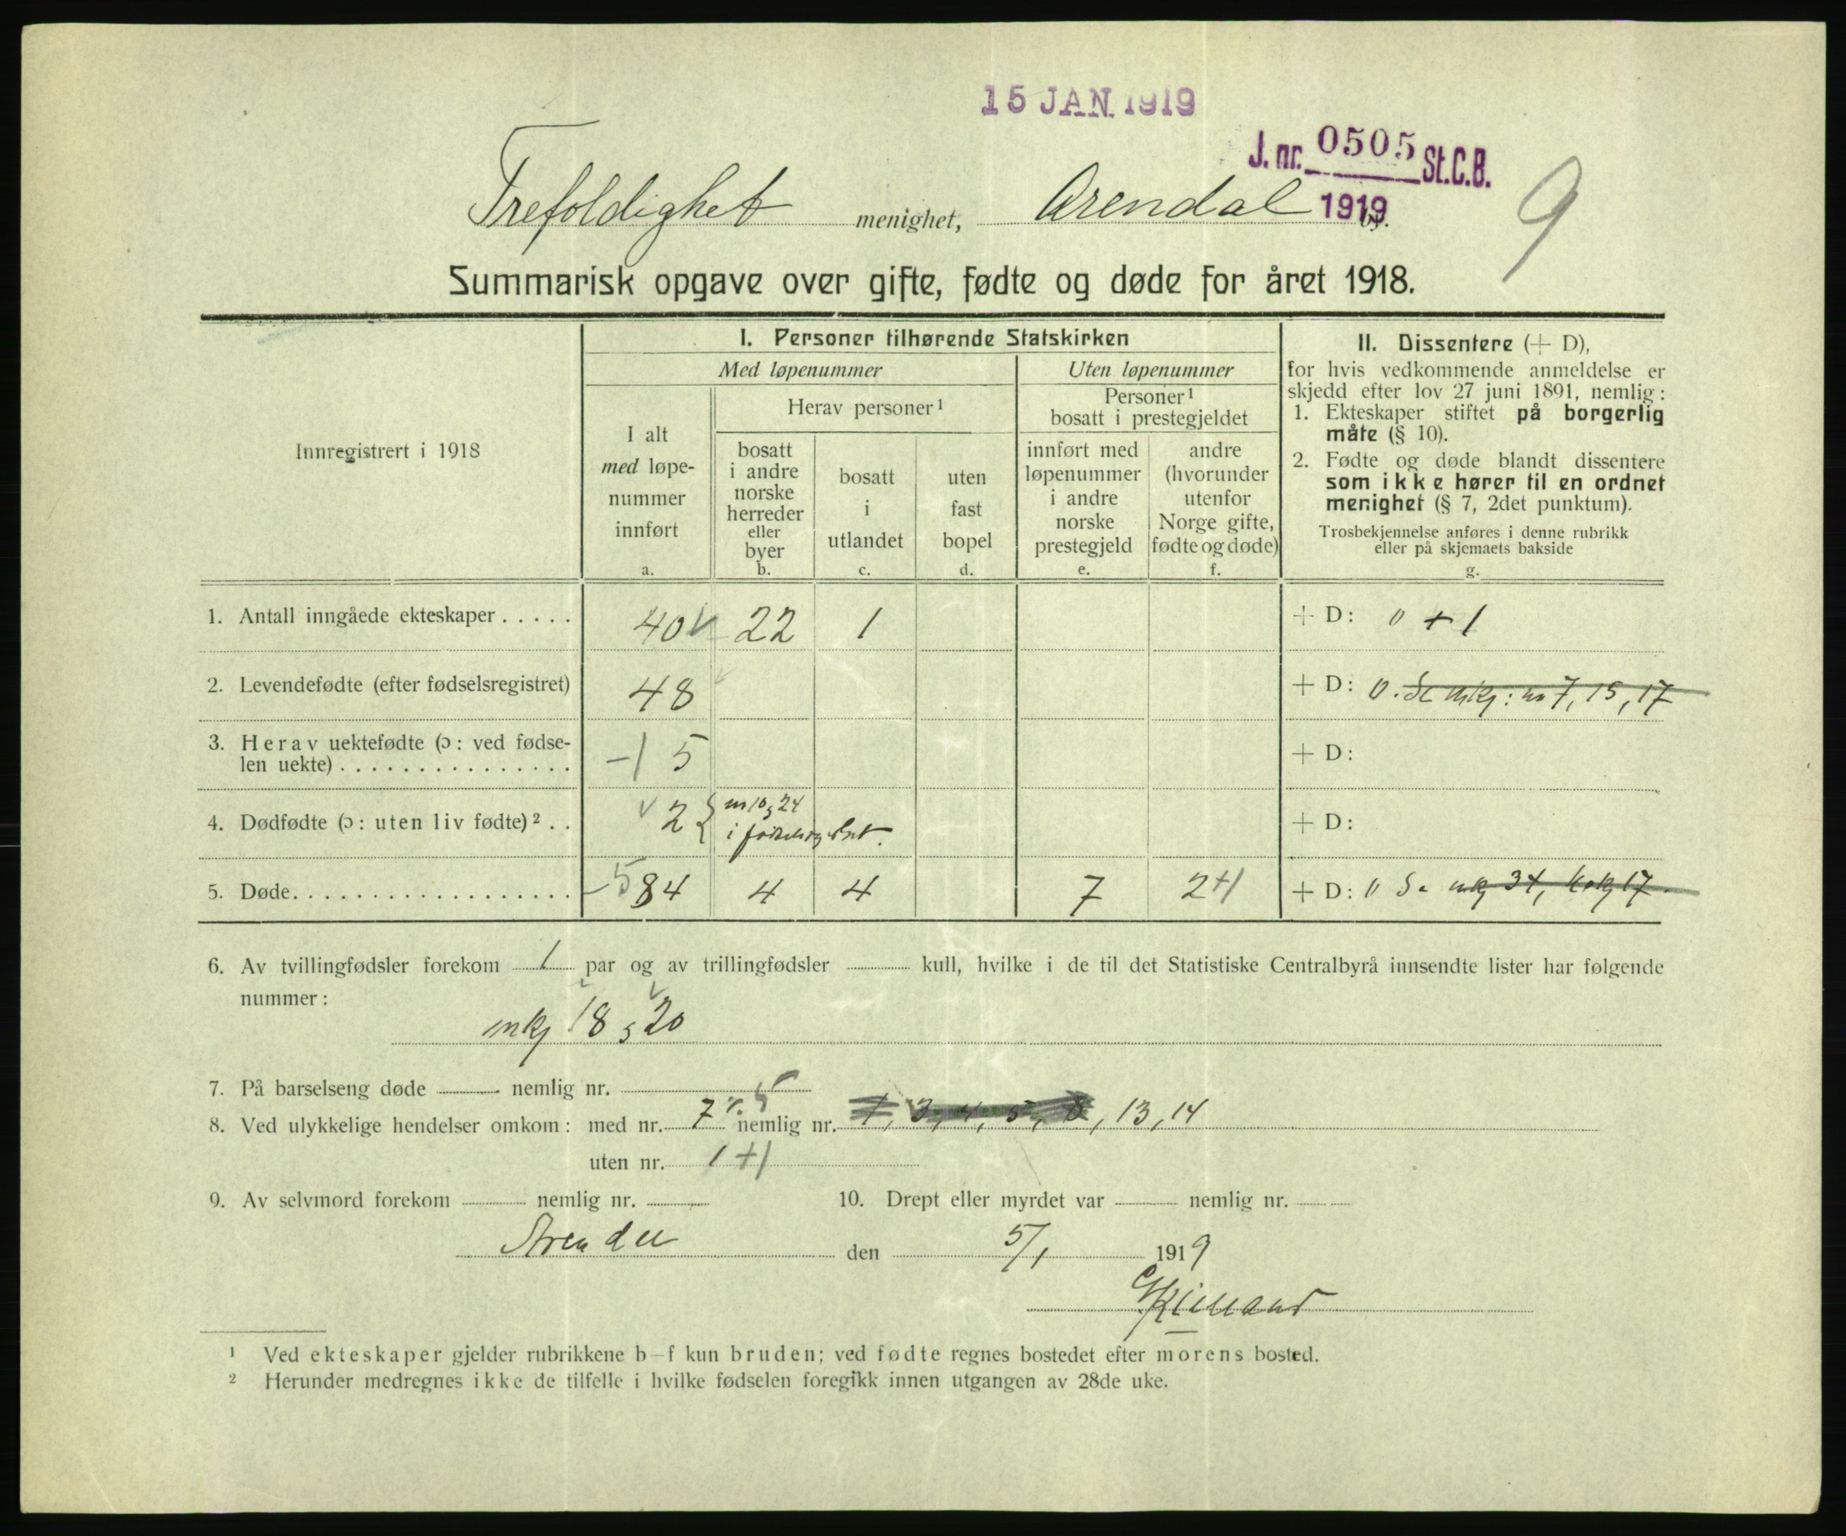 15 JAN. 1919
J. nr. 0505 St.C.B.
1919
9
Trefoldighet menighet, Arendal by.
Summarisk opgave over gifte, fødte og døde for året 1918.
Innregistrert i 1918
I. Personer tilhørende Statskirken
Med løpenummer
Uten løpenummer
I alt
med løpe-
nummer
innført
a.
Herav personer¹
bosatt
i andre
norske
herreder
eller
byer
b.
bosatt
i
utlandet
c.
uten
fast
bopel
d.
Personer¹
bosatt i prestegjeldet
innført med
løpenummer
i andre
norske
prestegjeld
e.
andre
(hvorunder
utenfor
Norge gifte,
fødte og døde)
f.
II. Dissentere (+ D),
for hvis vedkommende anmeldelse er
skjedd efter lov 27 juni 1891, nemlig:
1. Ekteskaper stiftet på borgerlig
måte (§ 10).
2. Fødte og døde blandt dissentere
som ikke hører til en ordnet
menighet (§ 7, 2det punktum).
Trosbekjennelse anføres i denne rubrikk
eller på skjemaets bakside
g.
1. Antall inngåede ekteskaper . . . . . 40 22 1 + D: 0 + 1
2. Levendefødte (efter fødselsregistret) 48 + D: 0. Se mkj: nr 7, 15, 17
3. Herav uektefødte (ɔ: ved fødse-
len uekte) . . . . . . . . . . . . . . . -1 5 + D:
4. Dødfødte (ɔ: uten liv fødte)² . . 2 { nr 10 og 24
i fødselsreg istret. + D:
5. Døde. . . . . . . . . . . . . . . . . . -5 84 4 4 7 2+1 + D: 0 Se mkj 34, kvkj 17.
6. Av tvillingfødsler forekom 1 par og av trillingfødsler kull, hvilke i de til det Statistiske Centralbyrå innsendte lister har følgende
nummer:
mkj 18 og 20
7. På barselseng døde nemlig nr.
8. Ved ulykkelige hendelser omkom: med nr. 7 ÷ 5 nemlig nr. 1, 3, 4, 5, 8, 13, 14
uten nr. 1 +1
9. Av selvmord forekom nemlig nr. 10. Drept eller myrdet var nemlig nr.
Arendal den 5/1 1919
¹ Ved ekteskaper gjelder rubrikkene b—f kun bruden; ved fødte regnes bostedet efter morens bosted.
² Herunder medregnes ikke de tilfelle i hvilke fødselen foregikk innen utgangen av 28de uke.